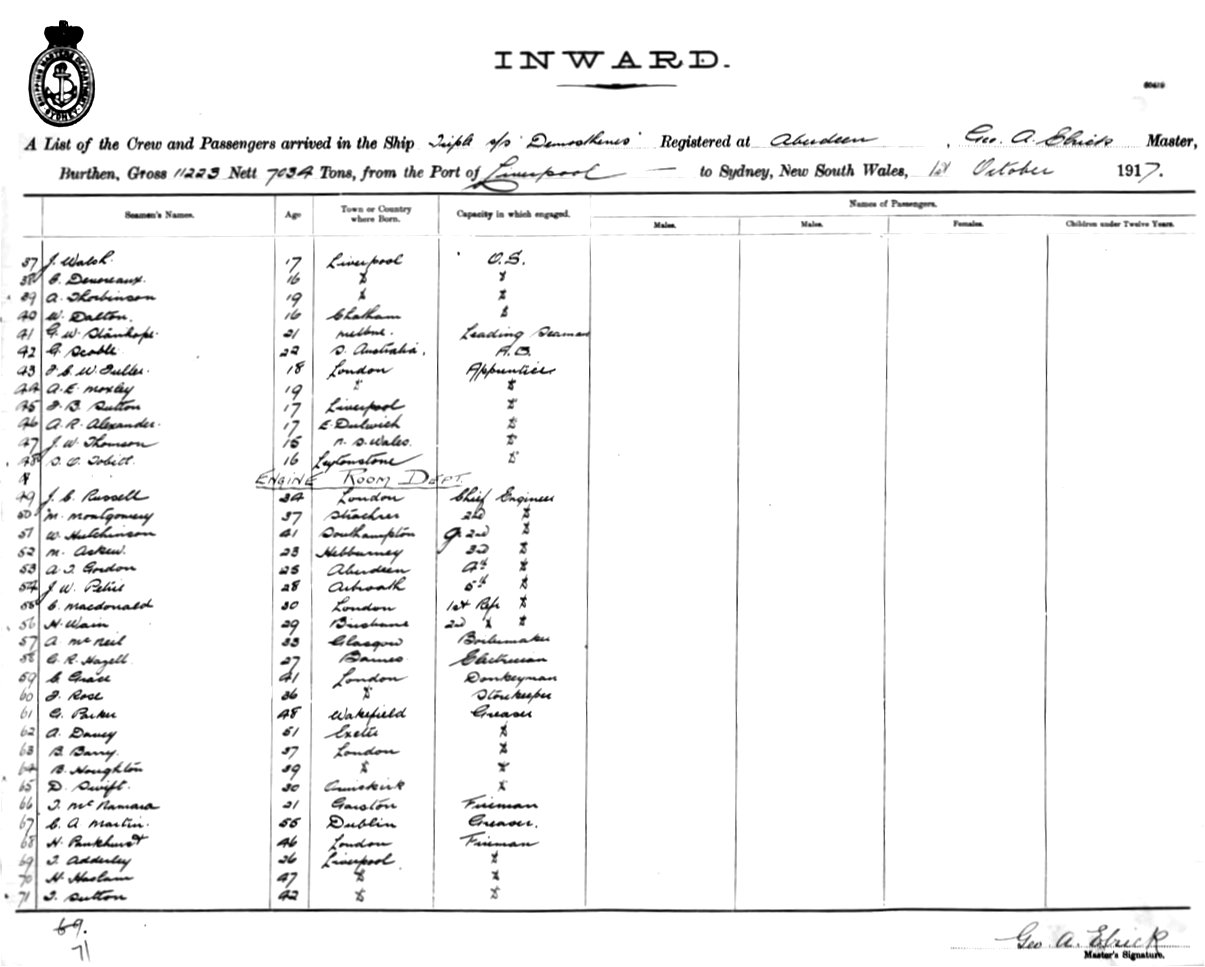 SHIPPING MASTERS DEPARTMENT SYDNEY
INWARD.
A List of the Crew and Passengers arrived in the Ship Triple s/s "Demosthenes" Registered at Aberdeen, Geo. A. Elrick Master,
Burthen, Gross 11223 Nett 7034 Tons, from the Port of Liverpool — to Sydney, New South Wales, 1st October 1917.
Seamen's Names. Age Town or Country where Born. Capacity in which engaged. Names of Passengers.
Males. Males. Females. Children under Twelve Years.
37 J. Walsh. 17 Liverpool O.S.
38 C. Devereaux. 16 " "
39 A. Thorbinson 19 " "
40 W. Dalton. 16 Chatham "
41 G. W. Stanhope. 21 Melbne. Leading Seaman
42 G. Scoble 22 S. Australia. A.B.
43 F. C. W. Fuller. 18 London Apprentice
44 A. E. Moxley 19 " "
45 F. B. Sutton 17 Liverpool "
46 A. R. Alexander. 17 E. Dulwich "
47 J. W. Thomson 15 N. S. Wales. "
48 S. O. Tobitt 16 Leytonstone "
ENGINE ROOM DEPT.
49 J. C. Russell 34 London Chief Engineer
50 M. Montgomery 37 2nd "
51 W. Hutchinson 41 Southampton 2nd "
52 M. Askew. 23 3rd "
53 A. J. Gordon 25 Aberdeen 4th "
54 J. W. Petrie 28 Arbroath 5th "
55 C. Macdonald 30 London 1st Refr "
56 H. Wain 29 Brisbane 2nd " "
57 A. McNeil 33 Glasgow Boilermaker
58 G. R. Hazell 27 Barnes Electrician
59 C. Grace 41 London Donkeyman
60 J. Rose 36 " Storekeeper
61 G. Parker 48 Wakefield Greaser
62 A. Davey 51 Exeter "
63 B. Barry. 37 London "
64 B. Houghton 39 " "
65 D. Swift. 30 Ormskirk "
66 T. McNamara 21 Garston Fireman
67 C. A. Martin. 55 Dublin Greaser.
68 H. Pankhurst 46 London Fireman
69 T. Adderley 26 Liverpool "
70 H. Haslam 47 " "
71 T. Sutton 42 " "
69.
71
Geo. A. Elrick
Master's Signature.